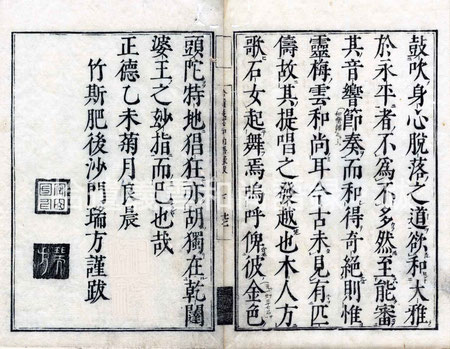 鼓吹身心脱落之道欲和大雅
於永平者不為不多然至能審
其音響節奏而和得奇絶則惟
靈梅雲和尚耳今古未見有匹
儔故其提唱之發越也木人方
歌石女起舞焉嗚呼俾彼金色
頭陀特地猖狂亦胡獨在乾闥
婆王之妙指而已也哉
正德乙未菊月良晨
竹斯肥後沙門瑞方謹跋